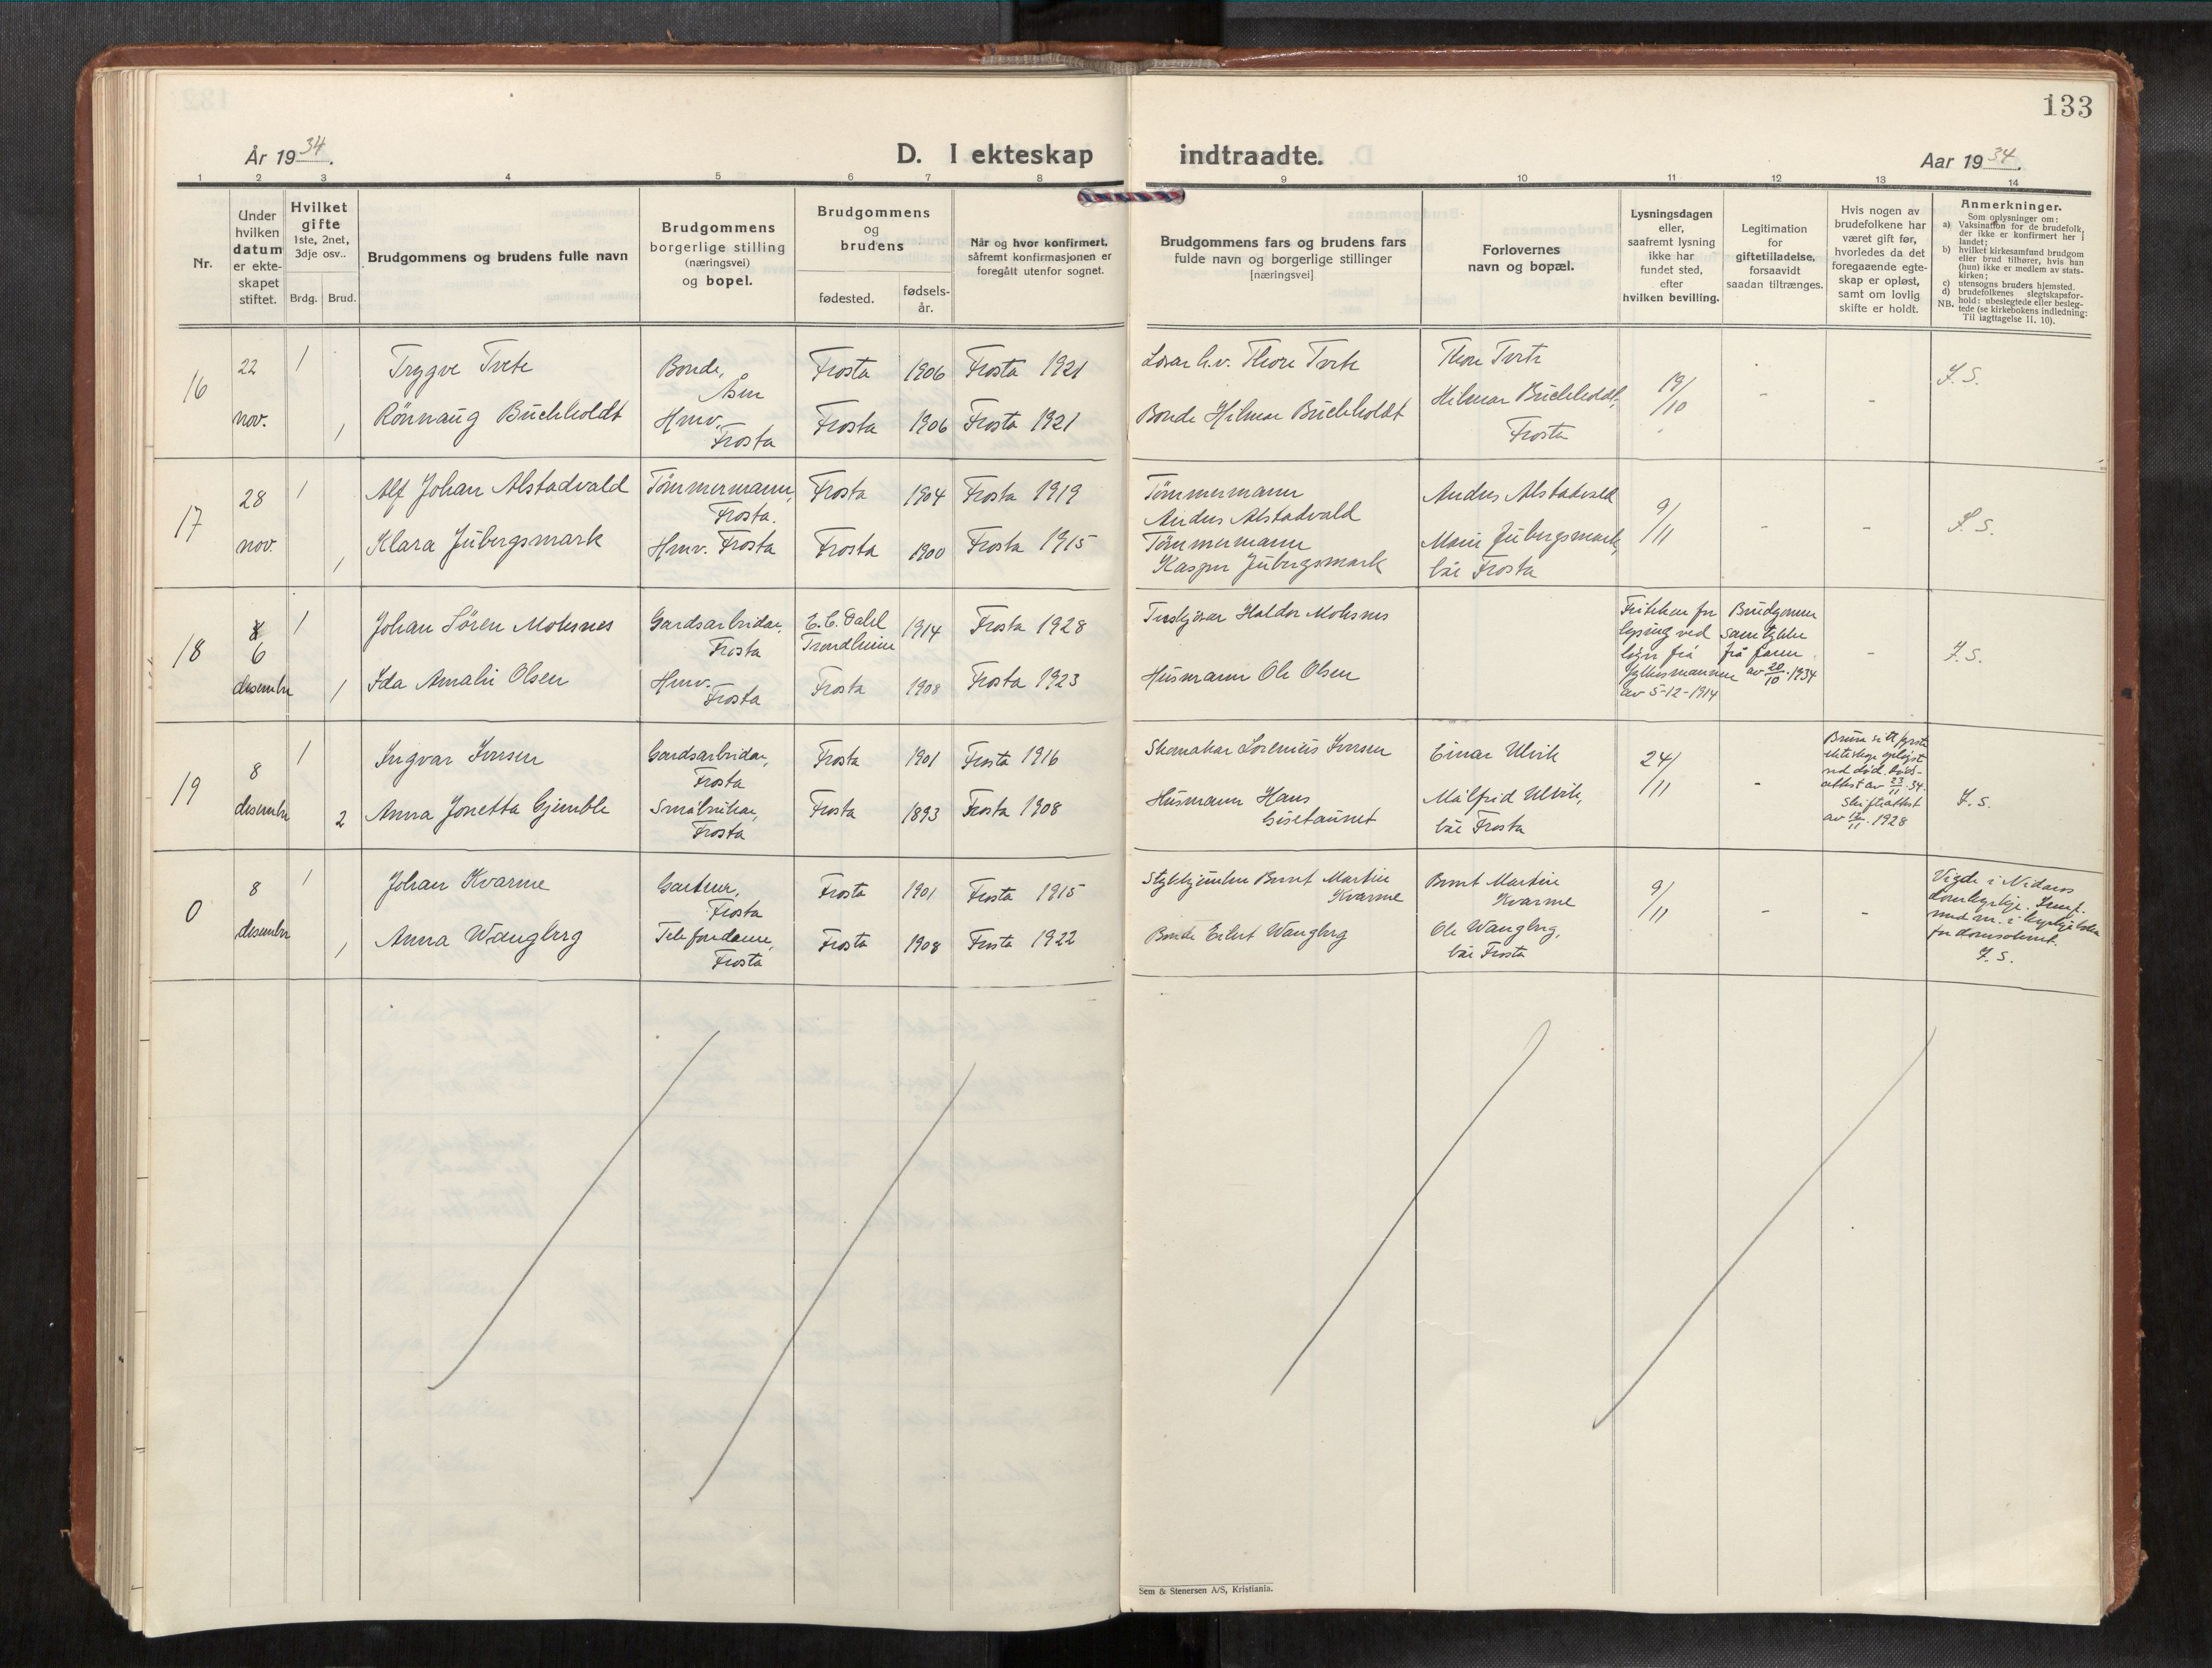 133
År 1934.
D. I ekteskap indtraadte.
Aar 1934.
1 2 3 4 5 6 7 8 9 10 11 12 13 14
Nr.
Under
hvilken
datum
er ekte-
skapet
stiftet.
Hvilket
gifte
1ste, 2net,
3dje osv..
Brdg. Brud.
Brudgommens og brudens fulle navn
Brudgommens
borgerlige stilling
(næringsvei)
og bopel.
Brudgommens
og
brudens
fødested.
fødsels-
år.
Når og hvor konfirmert,
såfremt konfirmasjonen er
foregått utenfor sognet.
Brudgommens fars og brudens fars
fulde navn og borgerlige stillinger
[næringsvei]
Forlovernes
navn og bopæl.
Lysningsdagen
eller,
saafremt lysning
ikke har
fundet sted,
efter
hvilken bevilling.
Legitimation
for
giftetilladelse,
forsaavidt
saadan tiltrænges.
Hvis nogen av
brudefolkene har
været gift før,
hvorledes da det
foregaaende egte-
skap er opløst,
samt om lovlig
skifte er holdt.
Anmerkninger.
Som oplysninger om:
a) Vaksination for de brudefolk,
der ikke er konfirmert her i
landet;
b) hvilket kirkesamfund brudgom
eller brud tilhører, hvis han
(hun) ikke er medlem av stats-
kirken;
c) utensogns bruders hjemsted.
d) brudefolkenes slegtskapsfor-
hold: ubeslegtede eller besleg-
NB. tede (se kirkebokens indledning:
Til iagttagelse II. 10).
16
22
nov.
1
Trygve Tvete
Bonde,
Åsen
Frosta 1906 Frosta 1921
1
Rönnaug Buchholdt
Hmv.
Frosta
Frosta 1906 Frosta 1921
Lærar h.v. Thore Tvete
Bonde Hilmar Buchholdt
Thore Tvete
Hilmar Buchholdt,
Frosta
19/10
-
-
17
28
nov.
1
Alf Johan Alstadvald
Tömmermann,
Frosta.
Frosta 1904 Frosta 1919
1
Klara Jubergsmark
Hmv. Frosta
Frosta 1900 Frosta 1915
Tömmermann
Anders Alstadvald
Tömmermann
Kasper Jubergsmark
Anders Alstadvald
Marie Jubergsmark,
bae Frosta
9/11
-
-
18
6
desember
1
Johan Sören Moksnes
Gardsarbeidar,
Frosta
E. C. Dahl
Trondheim
1914 Frosta 1928
1
Ida Amalie Olsen
Hmv.
Frosta
Frosta 1908 Frosta 1923
Haldor Moksnes
Husmann Ole Olsen
lysing ved
frå
Fylkesmannen
av 5-12-1914
Brudgommen
samtykke
frå faren
av 20/10 1934
-
19
8
desember
1
Ingvar Iversen
Gardsarbeidar,
Frosta
Frosta 1901 Frosta 1916
2
Anna Jonetta Gjemble
Småbrukar,
Frosta
Frosta 1893 Frosta 1908
Skomakar Lorenius Iversen
Husmann Hans
Gisetaunet
Einar Ulvik
Målfrid Ulvik,
bae Frosta
24/11
-
ved död. Död-
attest av 23/11 34.
Skifteattest
av 12/11 1928
0
8
desember
1
Johan Kvarme
Gartner,
Frosta
Frosta 1901 Frosta 1915
1
Anna Wangberg
Telefondame,
Frosta
Frosta 1908 Frosta 1922
Bernt Martin
Kvarme
Bonde Eilert Wangberg
Bernt Martin
Kvarme
Ole Wangberg,
bae Frosta
9/11
-
-
Vigde i Nidaros
Sem & Stenersen A/S, Kristiania.